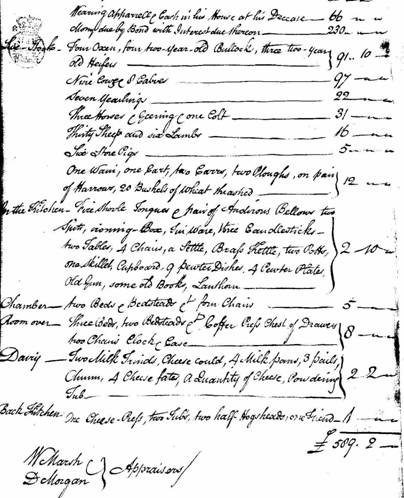 Wearing Apparell & Cash in his House at his Decease — 66 — —
Money due by Bond with Interest due thereon — 230 — —
Live Stock — Four Oxen, four two-year-old Bullocks, three two-year
old Heifers — 91 .. 10 —
Nine Cows & 8 Calves — 97 — —
Seven Yearlings — 22 — —
Three Horses & Geering & one Colt — 31 — —
Thirty Sheep and six Lambs — 16 — —
Six Store Pigs — 5 — —
One Wain, one Cart, two Carrs, two Ploughs, on pair
of Harrows, 20 Bushels of Wheat thrashed — 12 — —
In the Kitchen — Fire Shovle Tongues & pair of Andirons Bellows two
Spits, Box, Tin Ware, Three Candlesticks —
two Tables, 4 Chairs, a Settle, Brass Kettle, two Potts,
one Skillet, Cupboard, 9 pewter Dishes, 4 Pewter Plates,
Old Gun, some old Books, Lanthorn — 2 — 10 —
Chamber — two Beds & Bedsteads & four Chairs — 5 —
Room over — Three Beds, two Bedsteads & Coffer Press Chest of Drawers
two Chairs Clock & Case — 8 — —
Dairy — Two Milk Trinds, Cheese Cowld, 4 Milk pans, 3 pails,
Churn, 4 Cheese fates, A Quantity of Cheese, Powdering
Tub — 2 .. 2 —
Back Kitchen — One Cheese-Press, two Tubs, two half Hogsheads, one Trind — 1 — —
£ 589 .. 2 —
W Marsh
D Morgan } Appraisors